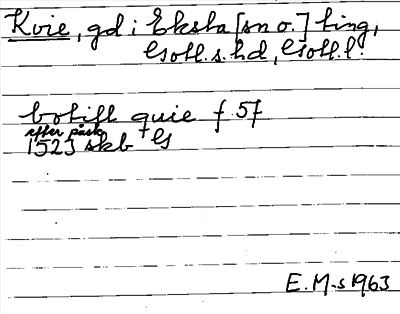 Kvie, gd i Eksta [sn o.] ting,
Gotl. s. hd, Gotl. l.
botiff quie f 57
efter påsk
1523 skb + G
E. M-s 1963